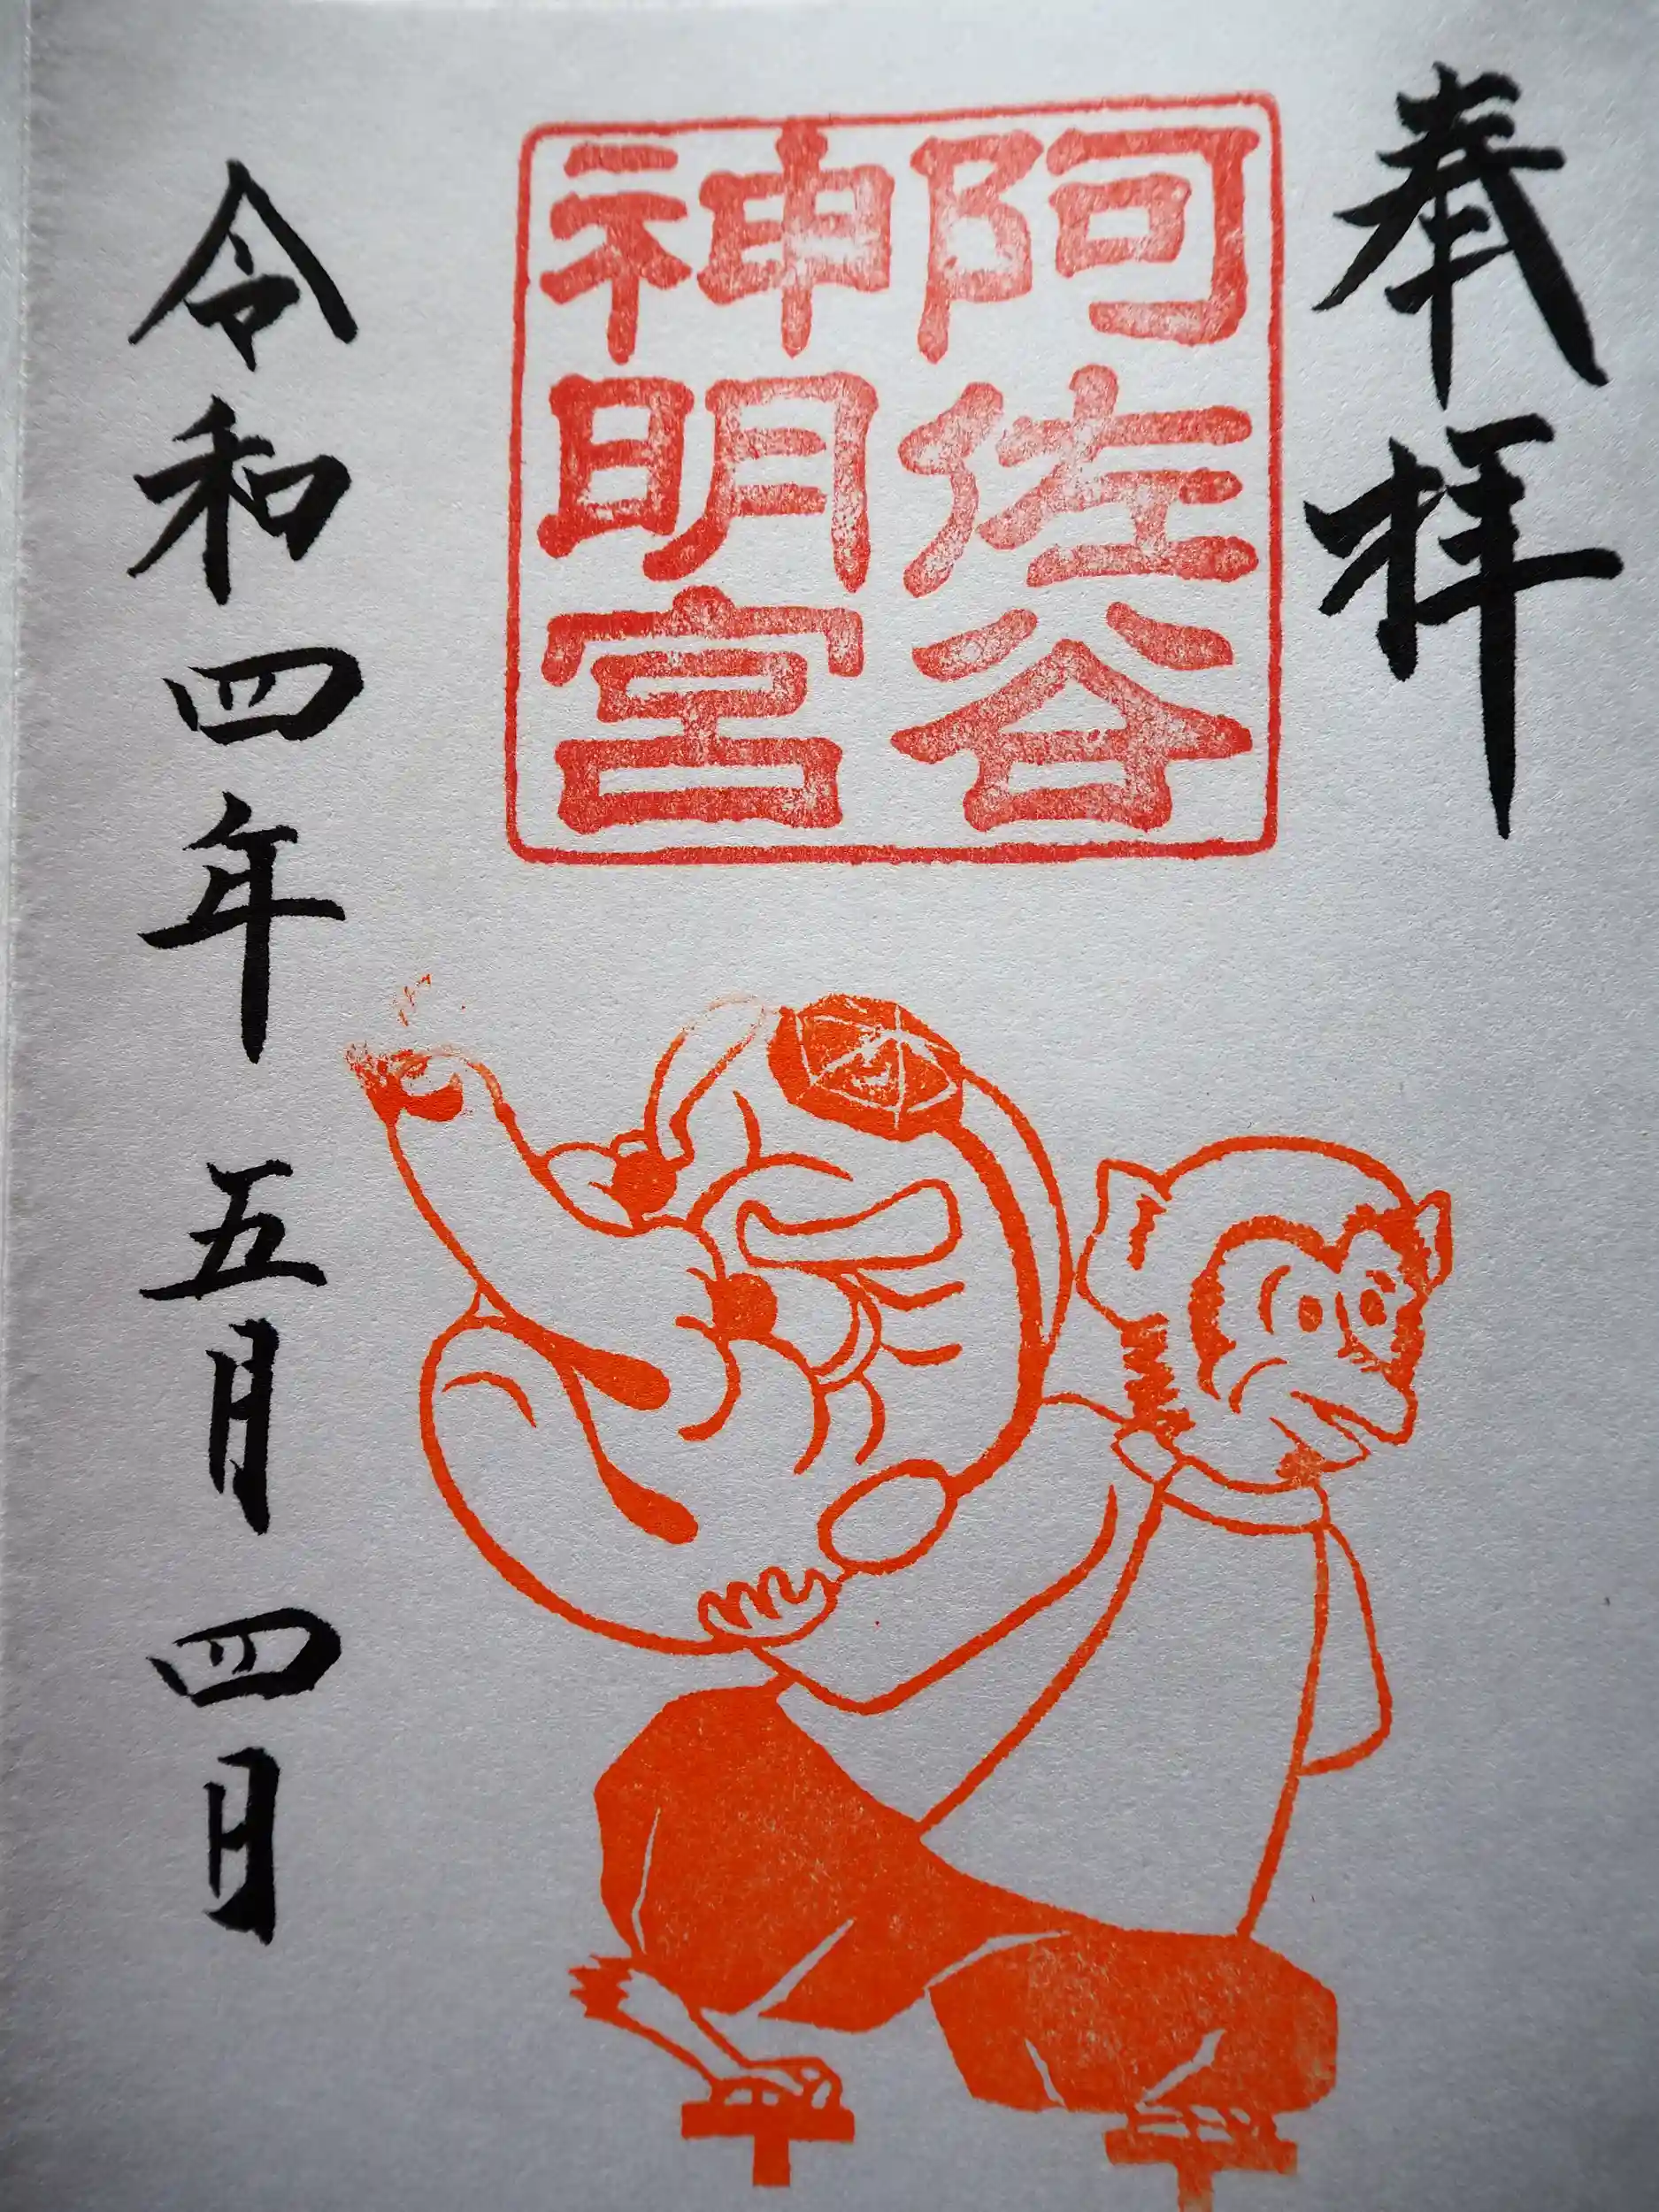 奉拝
阿佐谷
神明宮
令和四年 五月 四日